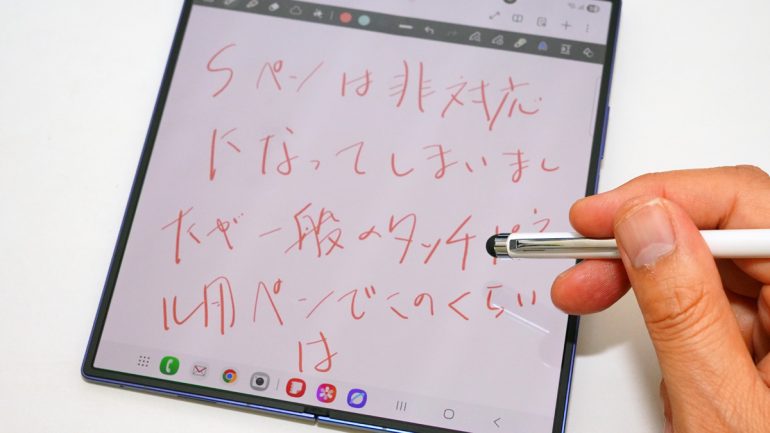 Sペンは非対応
になってしまいまし
たが一般のタッチパネ
ル用ペンでこのくらい
は